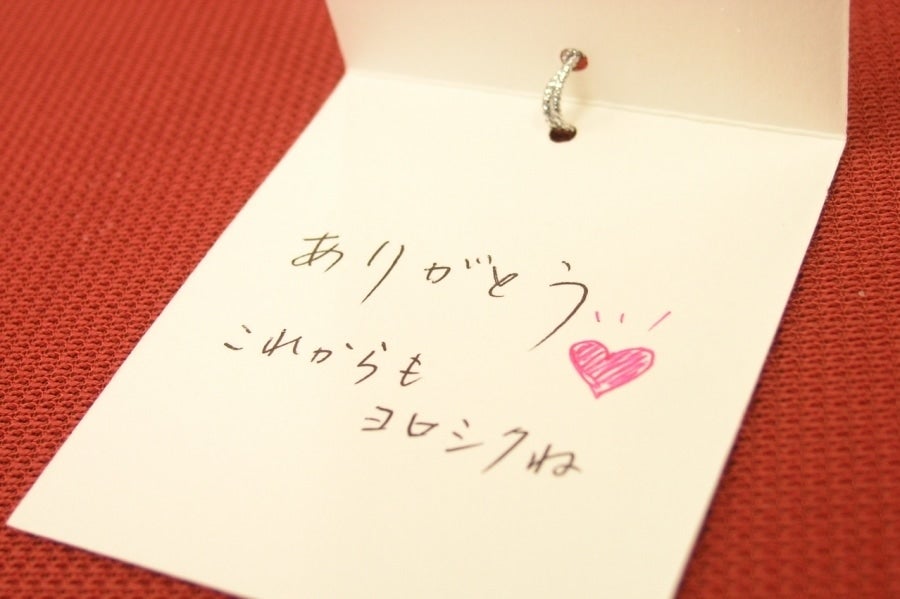 ありがとう
これからも
ヨロシクね